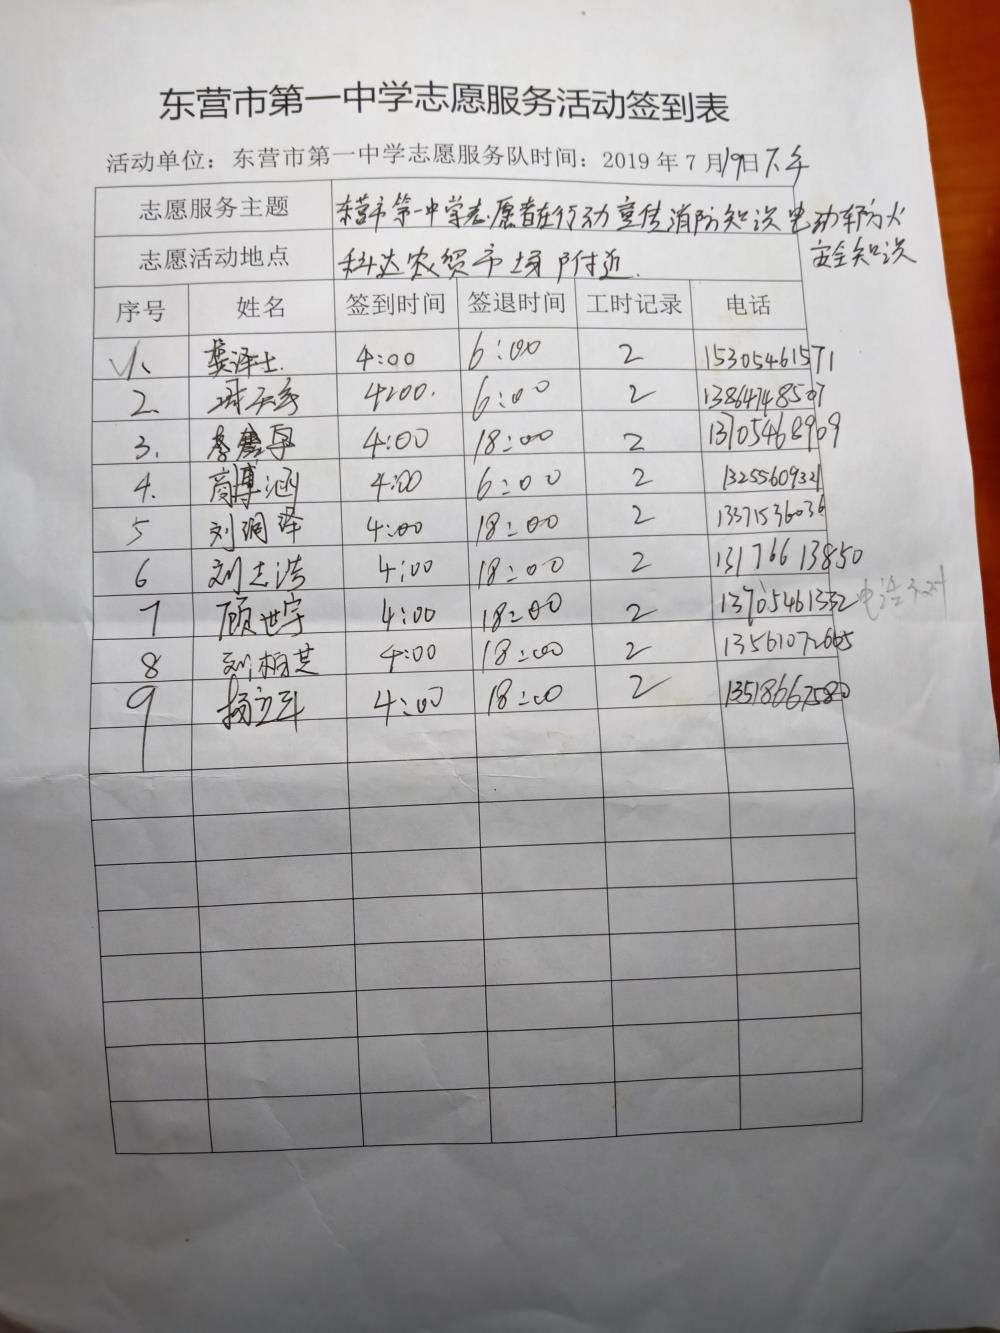 东营市第一中学志愿服务活动签到表
活动单位：东营市第一中学志愿服务队时间：2019年7月19日下午
志愿服务主题 东营市第一中学志愿者在行动宣传消防知识电动车防火
安全知识
志愿活动地点 科达农贸市场附近.
序号 姓名 签到时间 签退时间 工时记录 电话
1、 龚泽士. 4:00 6:00 2 15305461571
2、 4:00. 6:00 2 13864748507
3. 4:00 18:00 2 13705468909
4. 商博涵 4:00 6:00 2 13255609321
5 刘润泽 4:00 18:00 2 13371536036
6 刘志浩 4:00 18:00 2 13176613850
7 顾世宇 4:00 18:00 2 13705461332 电话不对
8 刘栩其 4:00 18:00 2 13561072665
9 杨立军 4:00 18:00 2 13518667580